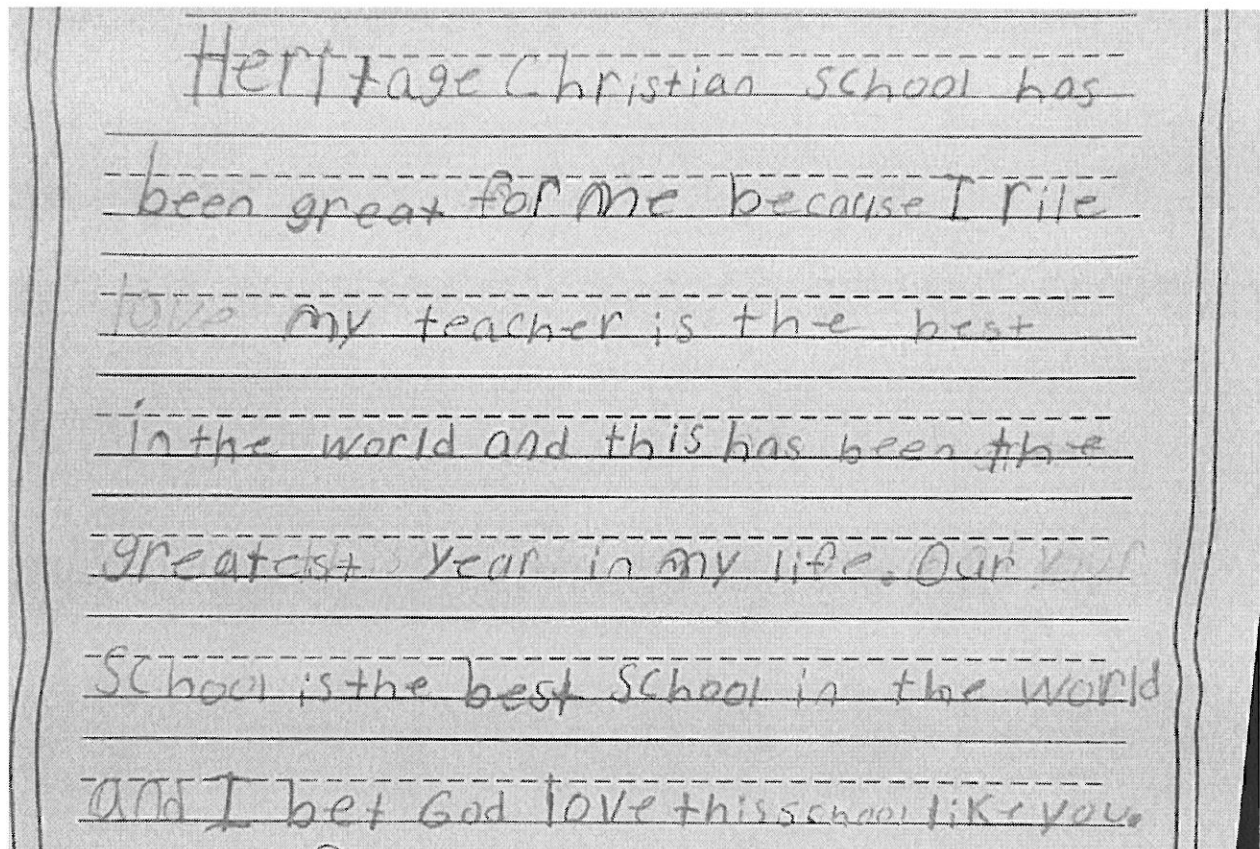 Heritage Christian School has
been great for me because I rile
love my teacher is the best
in the world and this has been the
greatest year in my life. Our
School is the best School in the world
and I bet God love this school like you.